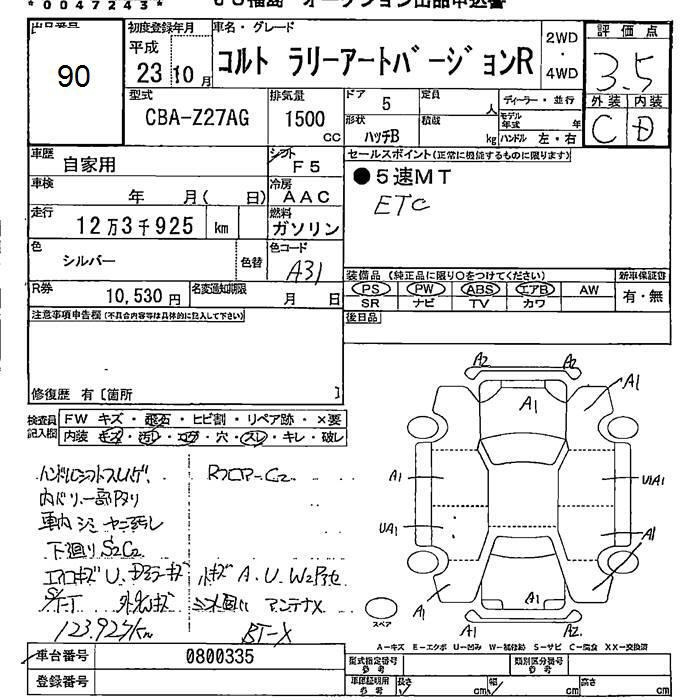 * 0 0 4 7 2 4 3 *
出品番号
90
初度登録年月
平成
23 10 月
車名・グレード
コルト ラリーアートバージョンR
2WD
・
4WD
評価点
3.5
外装 内装
C D
型式
CBA-Z27AG
排気量
1500
CC
ドア 5
定員
人
ディーラー・並行
形状
ハッチB
積載
kg
モデル年式
年
ハンドル 左・右
車歴
自家用
シフト
F5
セールスポイント(正常に機能するものに限ります)
●5速MT
ETC
車検
年 月( 日)
冷房
AAC
走行
12万3千925 km
燃料
ガソリン
色
シルバー
色替
色コード
A31
R券
10,530 円
名変通知期限
月 日
装備品(純正品に限り○をつけてください)
新車保証書
PS PW ABS エアB AW
SR ナビ TV カワ
有・無
後日品
注意事項申告欄(不具合内容等は具体的に記入して下さい)
修復歴 有〔箇所 〕
検査員記入欄
FW キズ・飛石・ヒビ割・リペア跡・×要
内装 キズ・汚れ・エグ・穴・スレ・キレ・破レ
ハンドルシフトスレハゲ
内バリ一部
車内シミヤニ汚れ
下廻りS2C2
123.925km
アンテナX
A2 A2
A1
A1
A1
U1A1
UA1
A1
A1
A1
A1 A2
スペア
A-キズ E-エクボ U-凹み W-補修跡 S-サビ C-腐食 XX-交換済
車台番号 0800335
登録番号
型式指定番号
参考
類別区分番号
参考
車庫証明用
参考
長さ cm
幅 cm
高さ cm